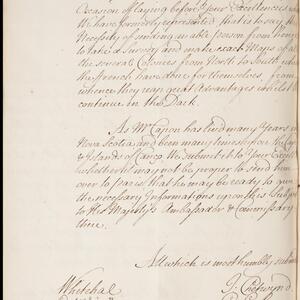 Occasion of laying before Your Excellencies what
We have formerly represented, that is to say the
Necessity of sending an able person from hence
to take a Survey and make exact Maps of all
the several Colonies from North to South, which
the French have done for themselves, from
whence they reap great Advantages whilst We
continue in the Dark.
As Mr Capon has lived many Years in
Nova Scotia and been many times upon the
& Islands of Canço We submit it to Your Excell
whether it may not be proper to send him
over to Paris that he may be ready to give
the necessary Informations upon this Subj
to His Majesty's Ambassador & Commissary
time.
All which is most humbly subm
Whitehal
T. Chetwynd